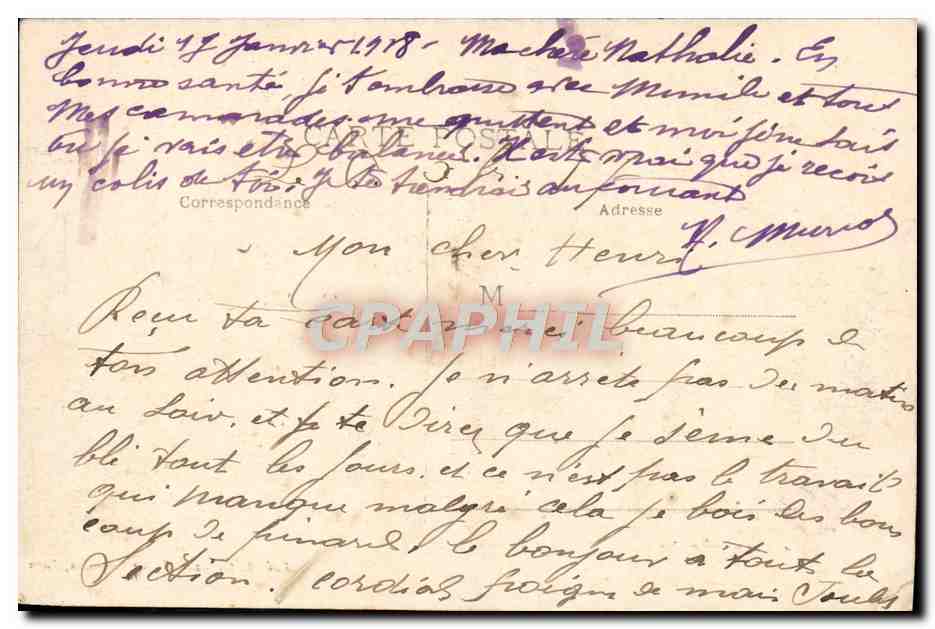 Jeudi 17 Janvier 1918 - Ma chère Nathalie. En
bonne santé je t'embrasse avec Mimile et tous
Mes camarades me quittent et moi je ne sais
CARTE POSTALE
où je vais être balancé. Il est vrai que je reçois
un colis de toi. Je te tiendrais au courant
Correspondance
Adresse
H.
Mon cher Henri
M
Reçu ta carte merci beaucoup de
CPAPHIL
ton attention. Je n'arrête pas du matin
au Soir, et je te dirai que je sème du
blé tout les jours et ce n'est pas le travail
qui manque malgré cela je bois les bons
coup de pinard. le bonjour à tout la
Section. cordial poigne de main Jules